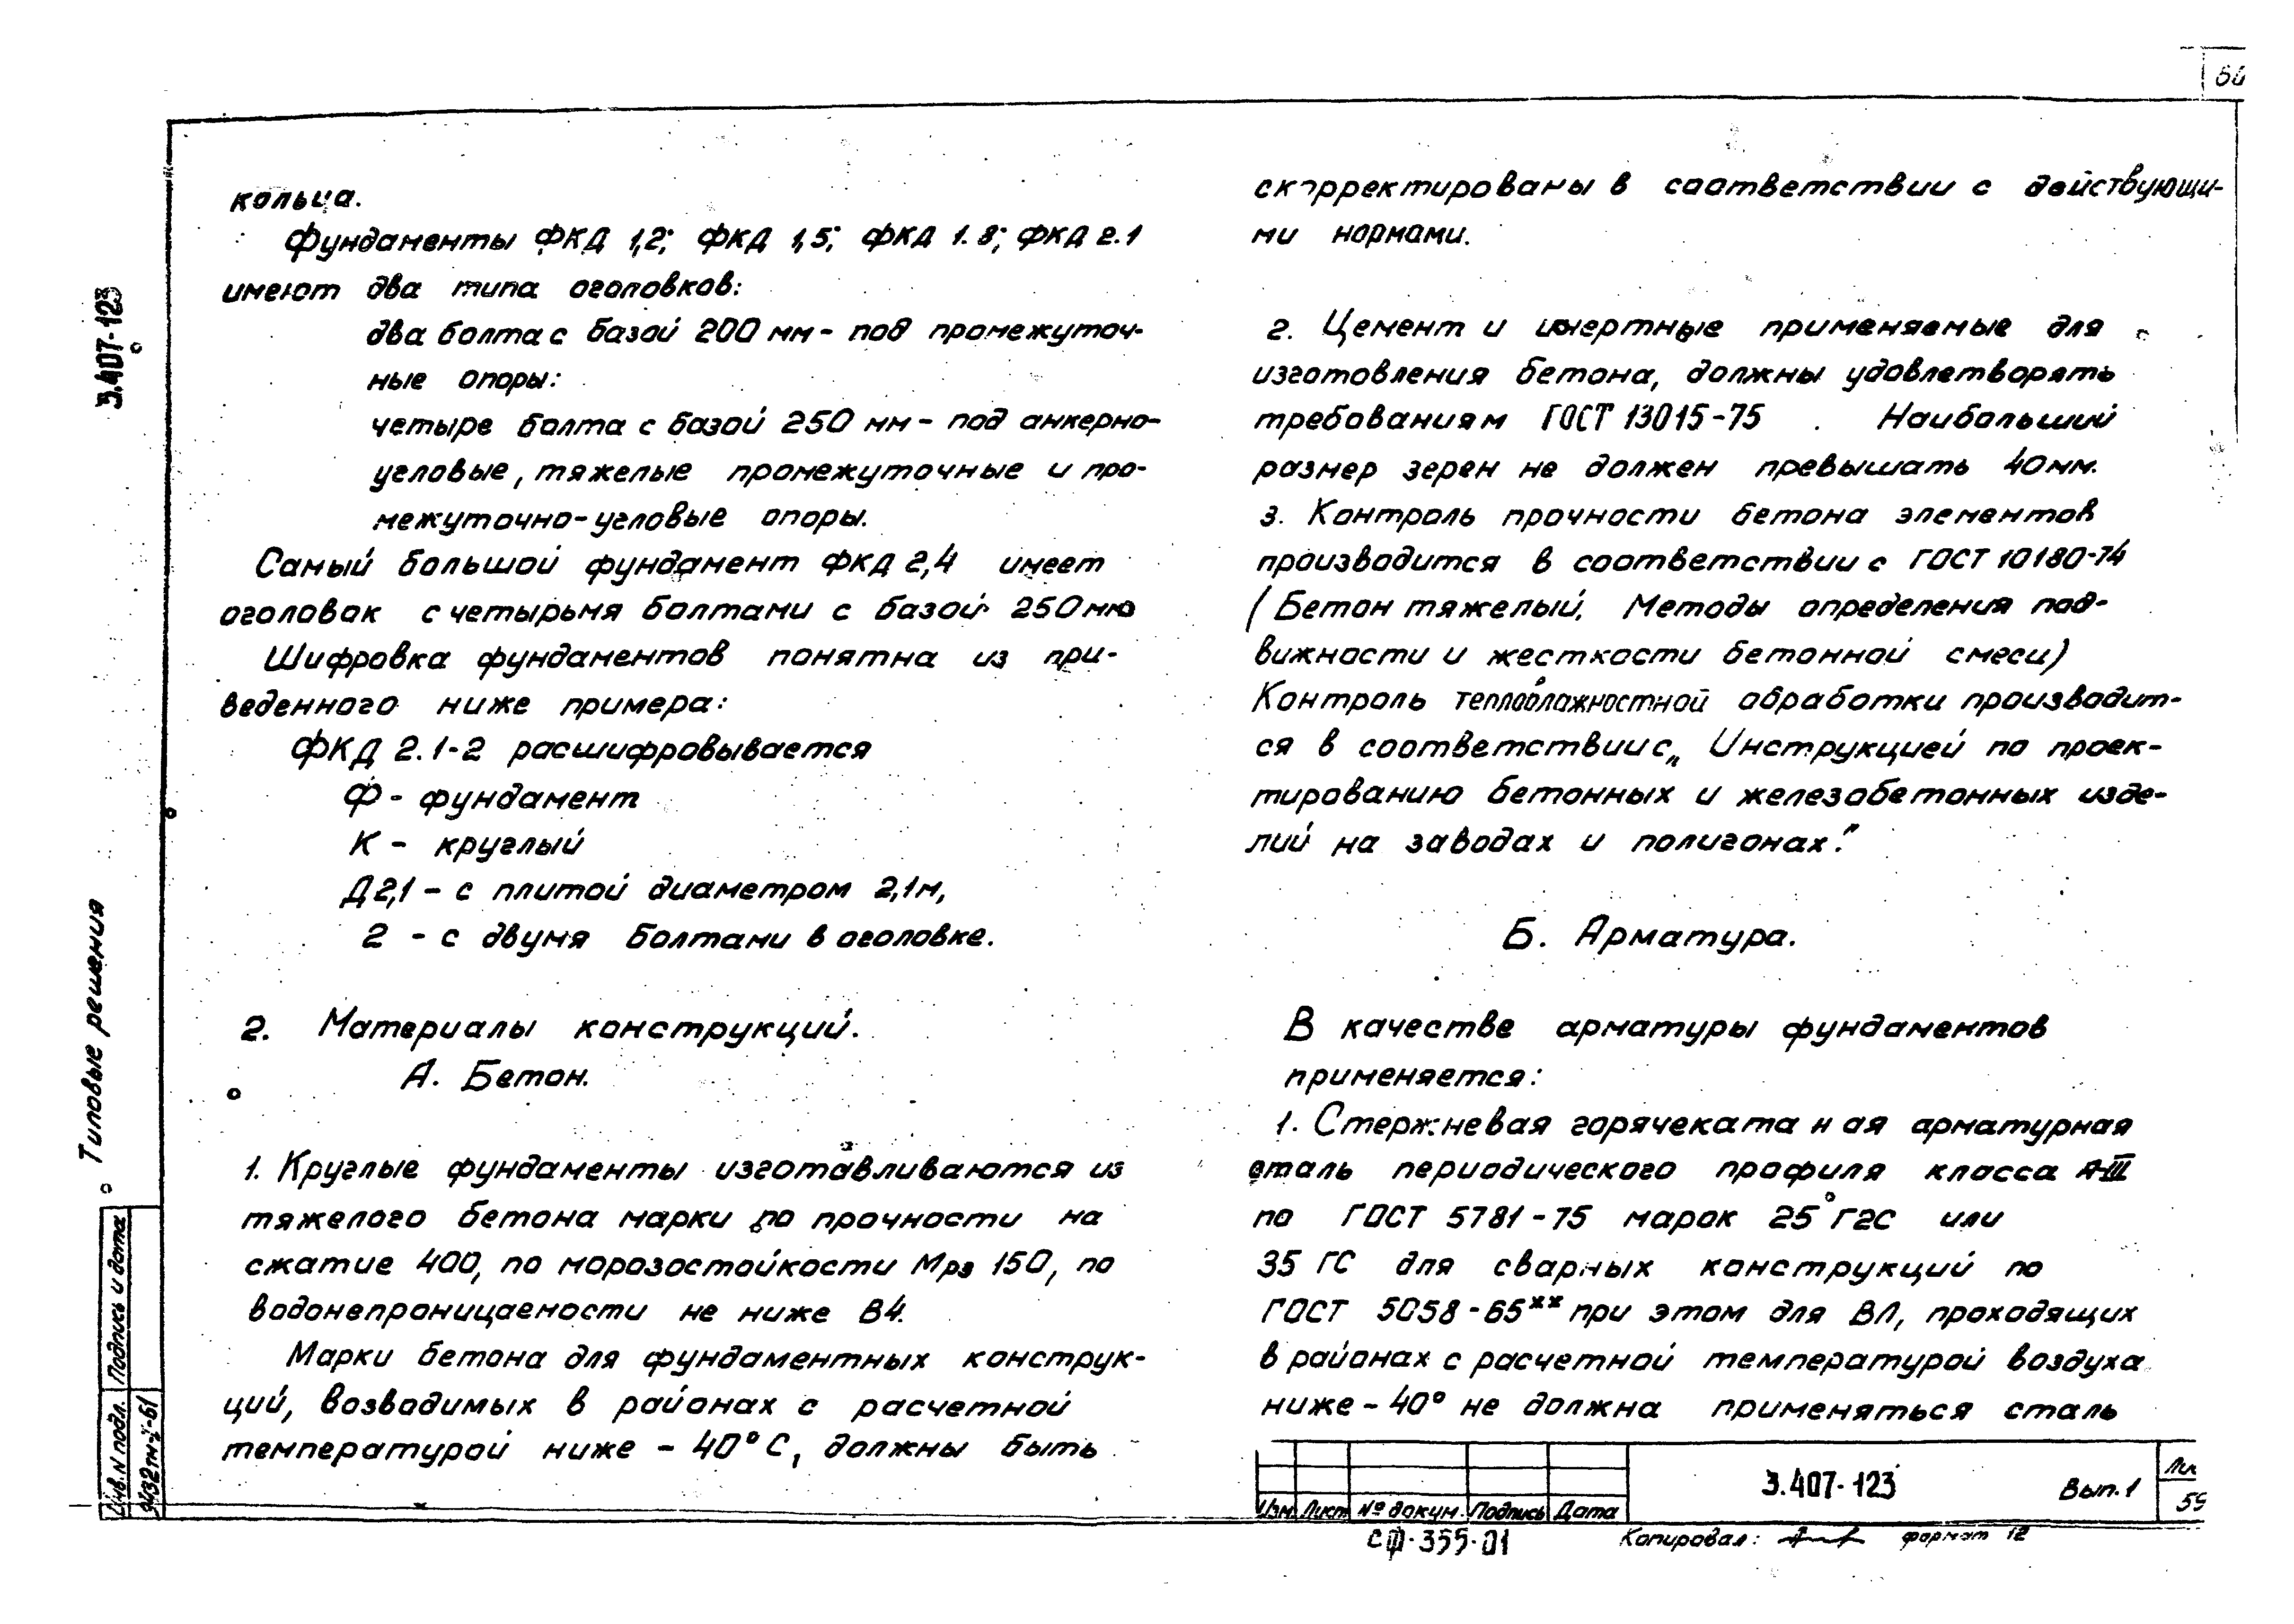 кольца.
Фундаменты ФКД 1,2; ФКД 1,5; ФКД 1.8; ФКД 2.1
имеют два типа оголовков:
два болта с базой 200 мм - под промежуточ-
ные опоры:
четыре болта с базой 250 мм - под анкерно-
угловые, тяжелые промежуточные и про-
межуточно-угловые опоры.
Самый большой фундамент ФКД 2,4 имеет
оголовок с четырьмя болтами с базой 250мм
Шифровка фундаментов понятна из при-
веденного ниже примера:
ФКД 2.1-2 расшифровывается
Ф - фундамент
К - круглый
Д2,1 - с плитой диаметром 2,1м,
2 - с двумя болтами в оголовке.
2. Материалы конструкций.
А. Бетон.
1. Круглые фундаменты изготавливаются из
тяжелого бетона марки по прочности на
сжатие 400, по морозостойкости Мрз 150, по
водонепроницаемости не ниже В4.
Марки бетона для фундаментных конструк-
ций, возводимых в районах с расчетной
температурой ниже - 40°С, должны быть
скорректированы в соответствии с действующи-
ми нормами.
2. Цемент и инертные применяемые для
изготовления бетона, должны удовлетворять
требованиям ГОСТ 13015-75 . Наибольший
размер зерен не должен превышать 40мм.
3. Контроль прочности бетона элементов
производится в соответствии с ГОСТ 10180-74
(Бетон тяжелый. Методы определения под-
вижности и жесткости бетонной смеси)
Контроль тепловлажностной обработки производит-
ся в соответствии с „Инструкцией по проек-
тированию бетонных и железобетонных изде-
лий на заводах и полигонах."
Б. Арматура.
В качестве арматуры фундаментов
применяется:
1. Стержневая горячекатаная арматурная
сталь периодического профиля класса А-III
по ГОСТ 5781-75 марок 25Г2С или
35 ГС для сварных конструкций по
ГОСТ 5058-65** при этом для ВЛ, проходящих
в районах с расчетной температурой воздуха
ниже - 40° не должна применяться сталь
3.407-123
Типовые решения
Подпись и дата
Инв. N подл.
Изм Лист № докум. Подпись Дата
3.407-123
Вып.1
59
СФ-355-01
Копировал:
формат 12